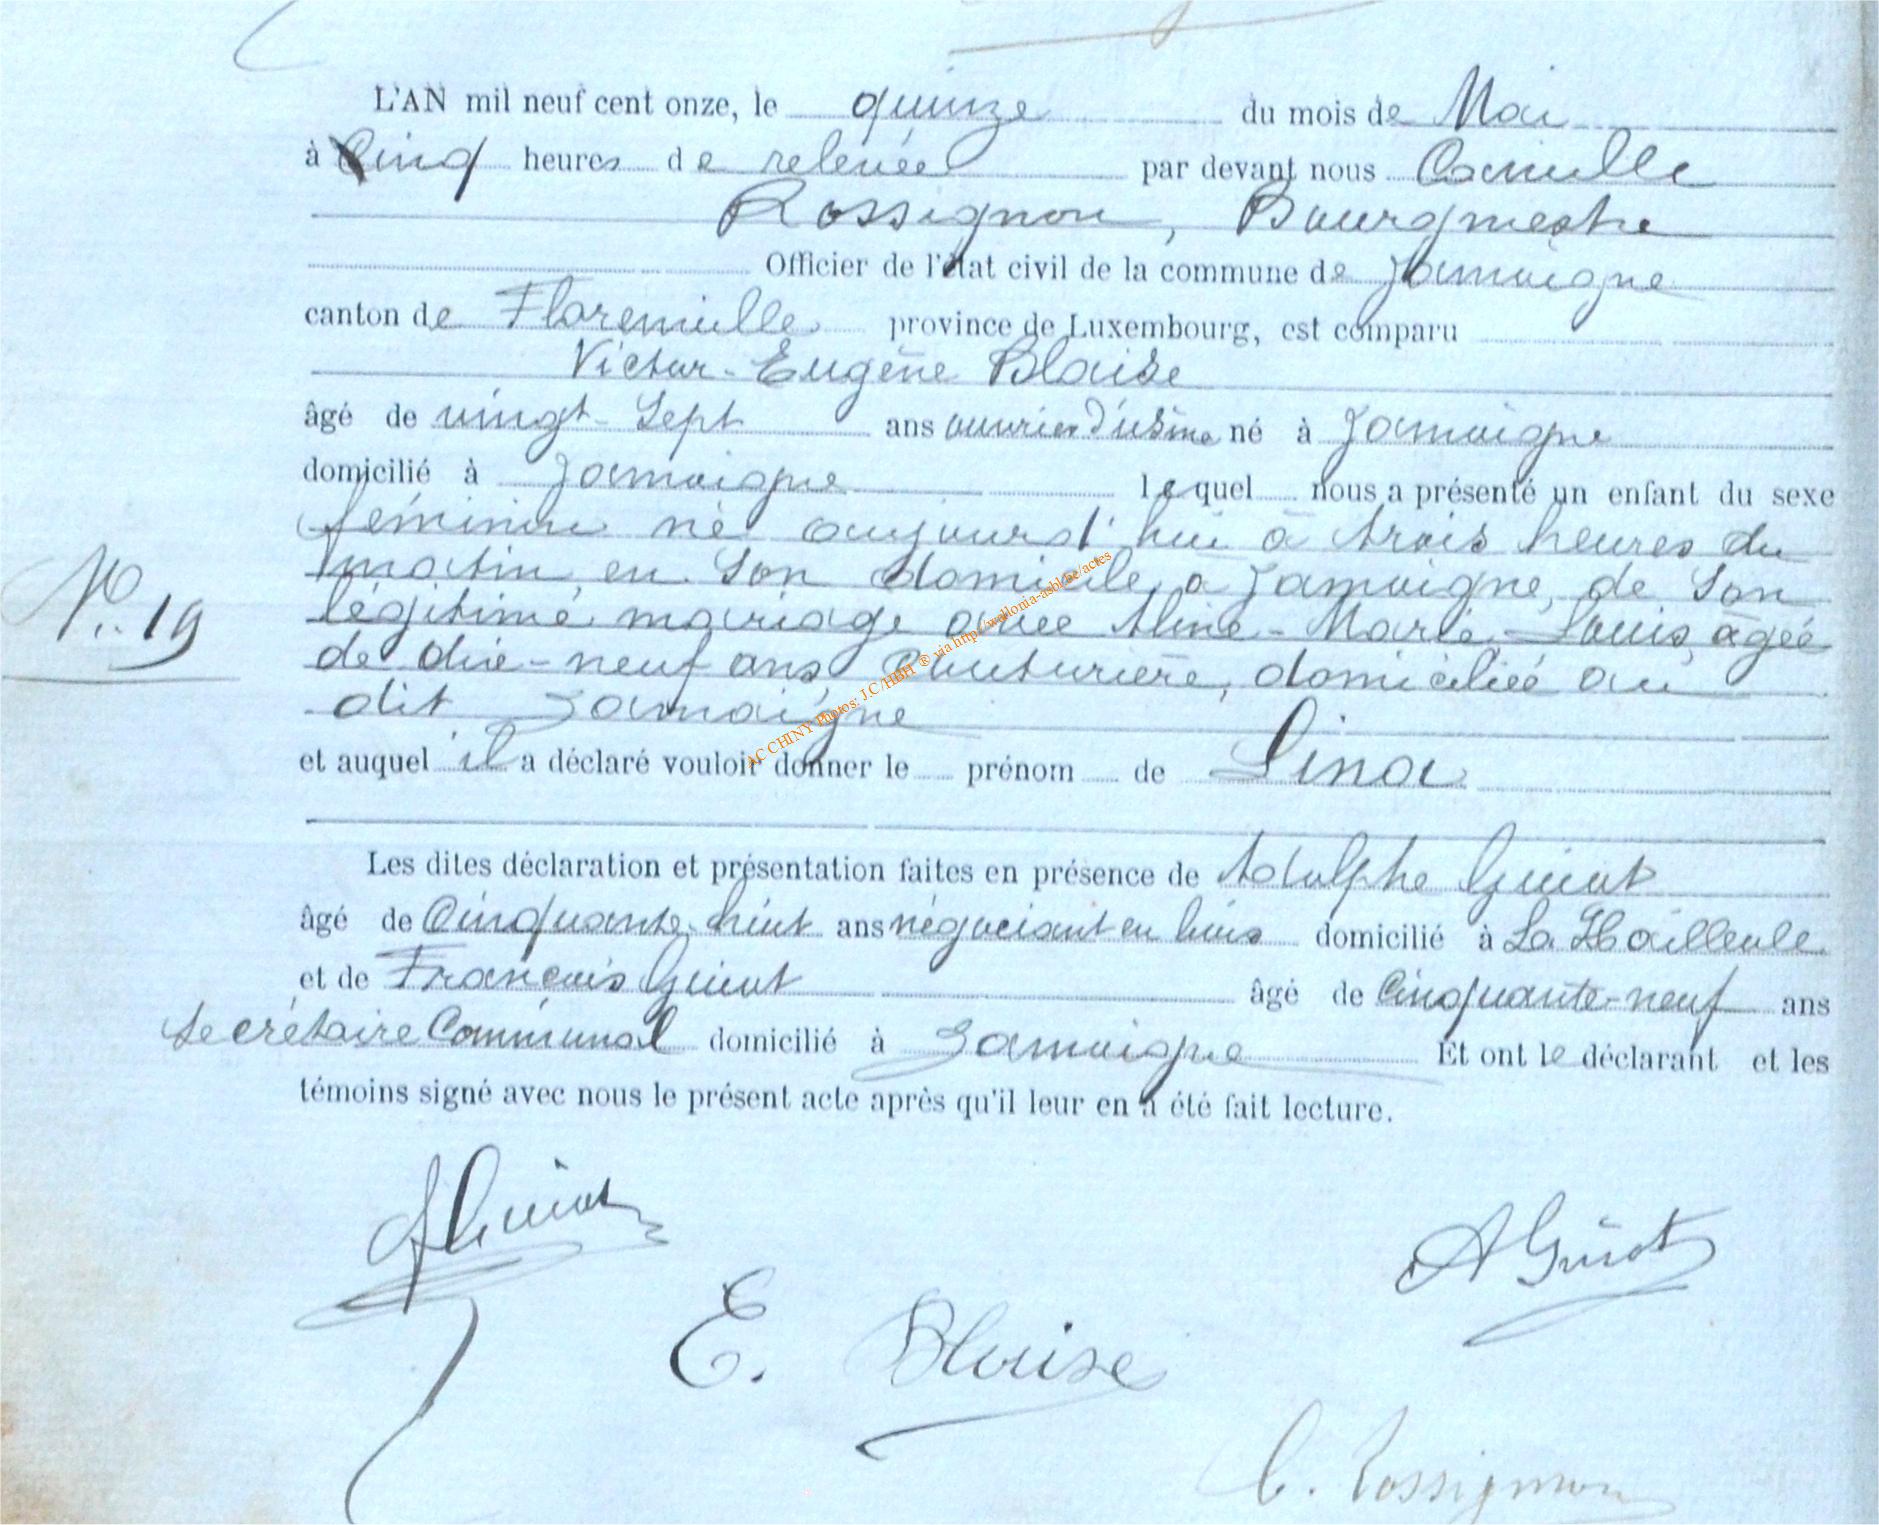 L'AN mil neuf cent onze, le quinze du mois de Mai
à Cinq heures de relevée par devant nous Camille
Rossignon, Bourgmestre
Officier de l'état civil de la commune de Jamoigne
canton de Florenville province de Luxembourg, est comparu
Victor-Eugène Blaise
âgé de vingt-sept ans ouvrier d'usine né à Jamoigne
domicilié à Jamoigne lequel nous a présenté un enfant du sexe
féminin né aujourd'hui à trois heures du
matin en son domicile à Jamoigne, de son
légitime mariage avec Aline-Marie Louis, âgée
N° 19
de dix-neuf ans Couturière, domiciliée au
dit Jamoigne
et auquel il a déclaré vouloir donner le prénom de Lina
AC CHINY Photos: J.C/HBH ® via http://wallonia-asbl.be/actes
Les dites déclaration et présentation faites en présence de Adolphe Guiot
âgé de Cinquante-huit ans négociant en bois domicilié à La Hailleule
et de François Guiot âgé de Cinquante-neuf ans
secrétaire Communal domicilié à Jamoigne Et ont le déclarant et les
témoins signé avec nous le présent acte après qu'il leur en a été fait lecture.
F Guiot
A Guiot
E. Blaise
C. Rossignon